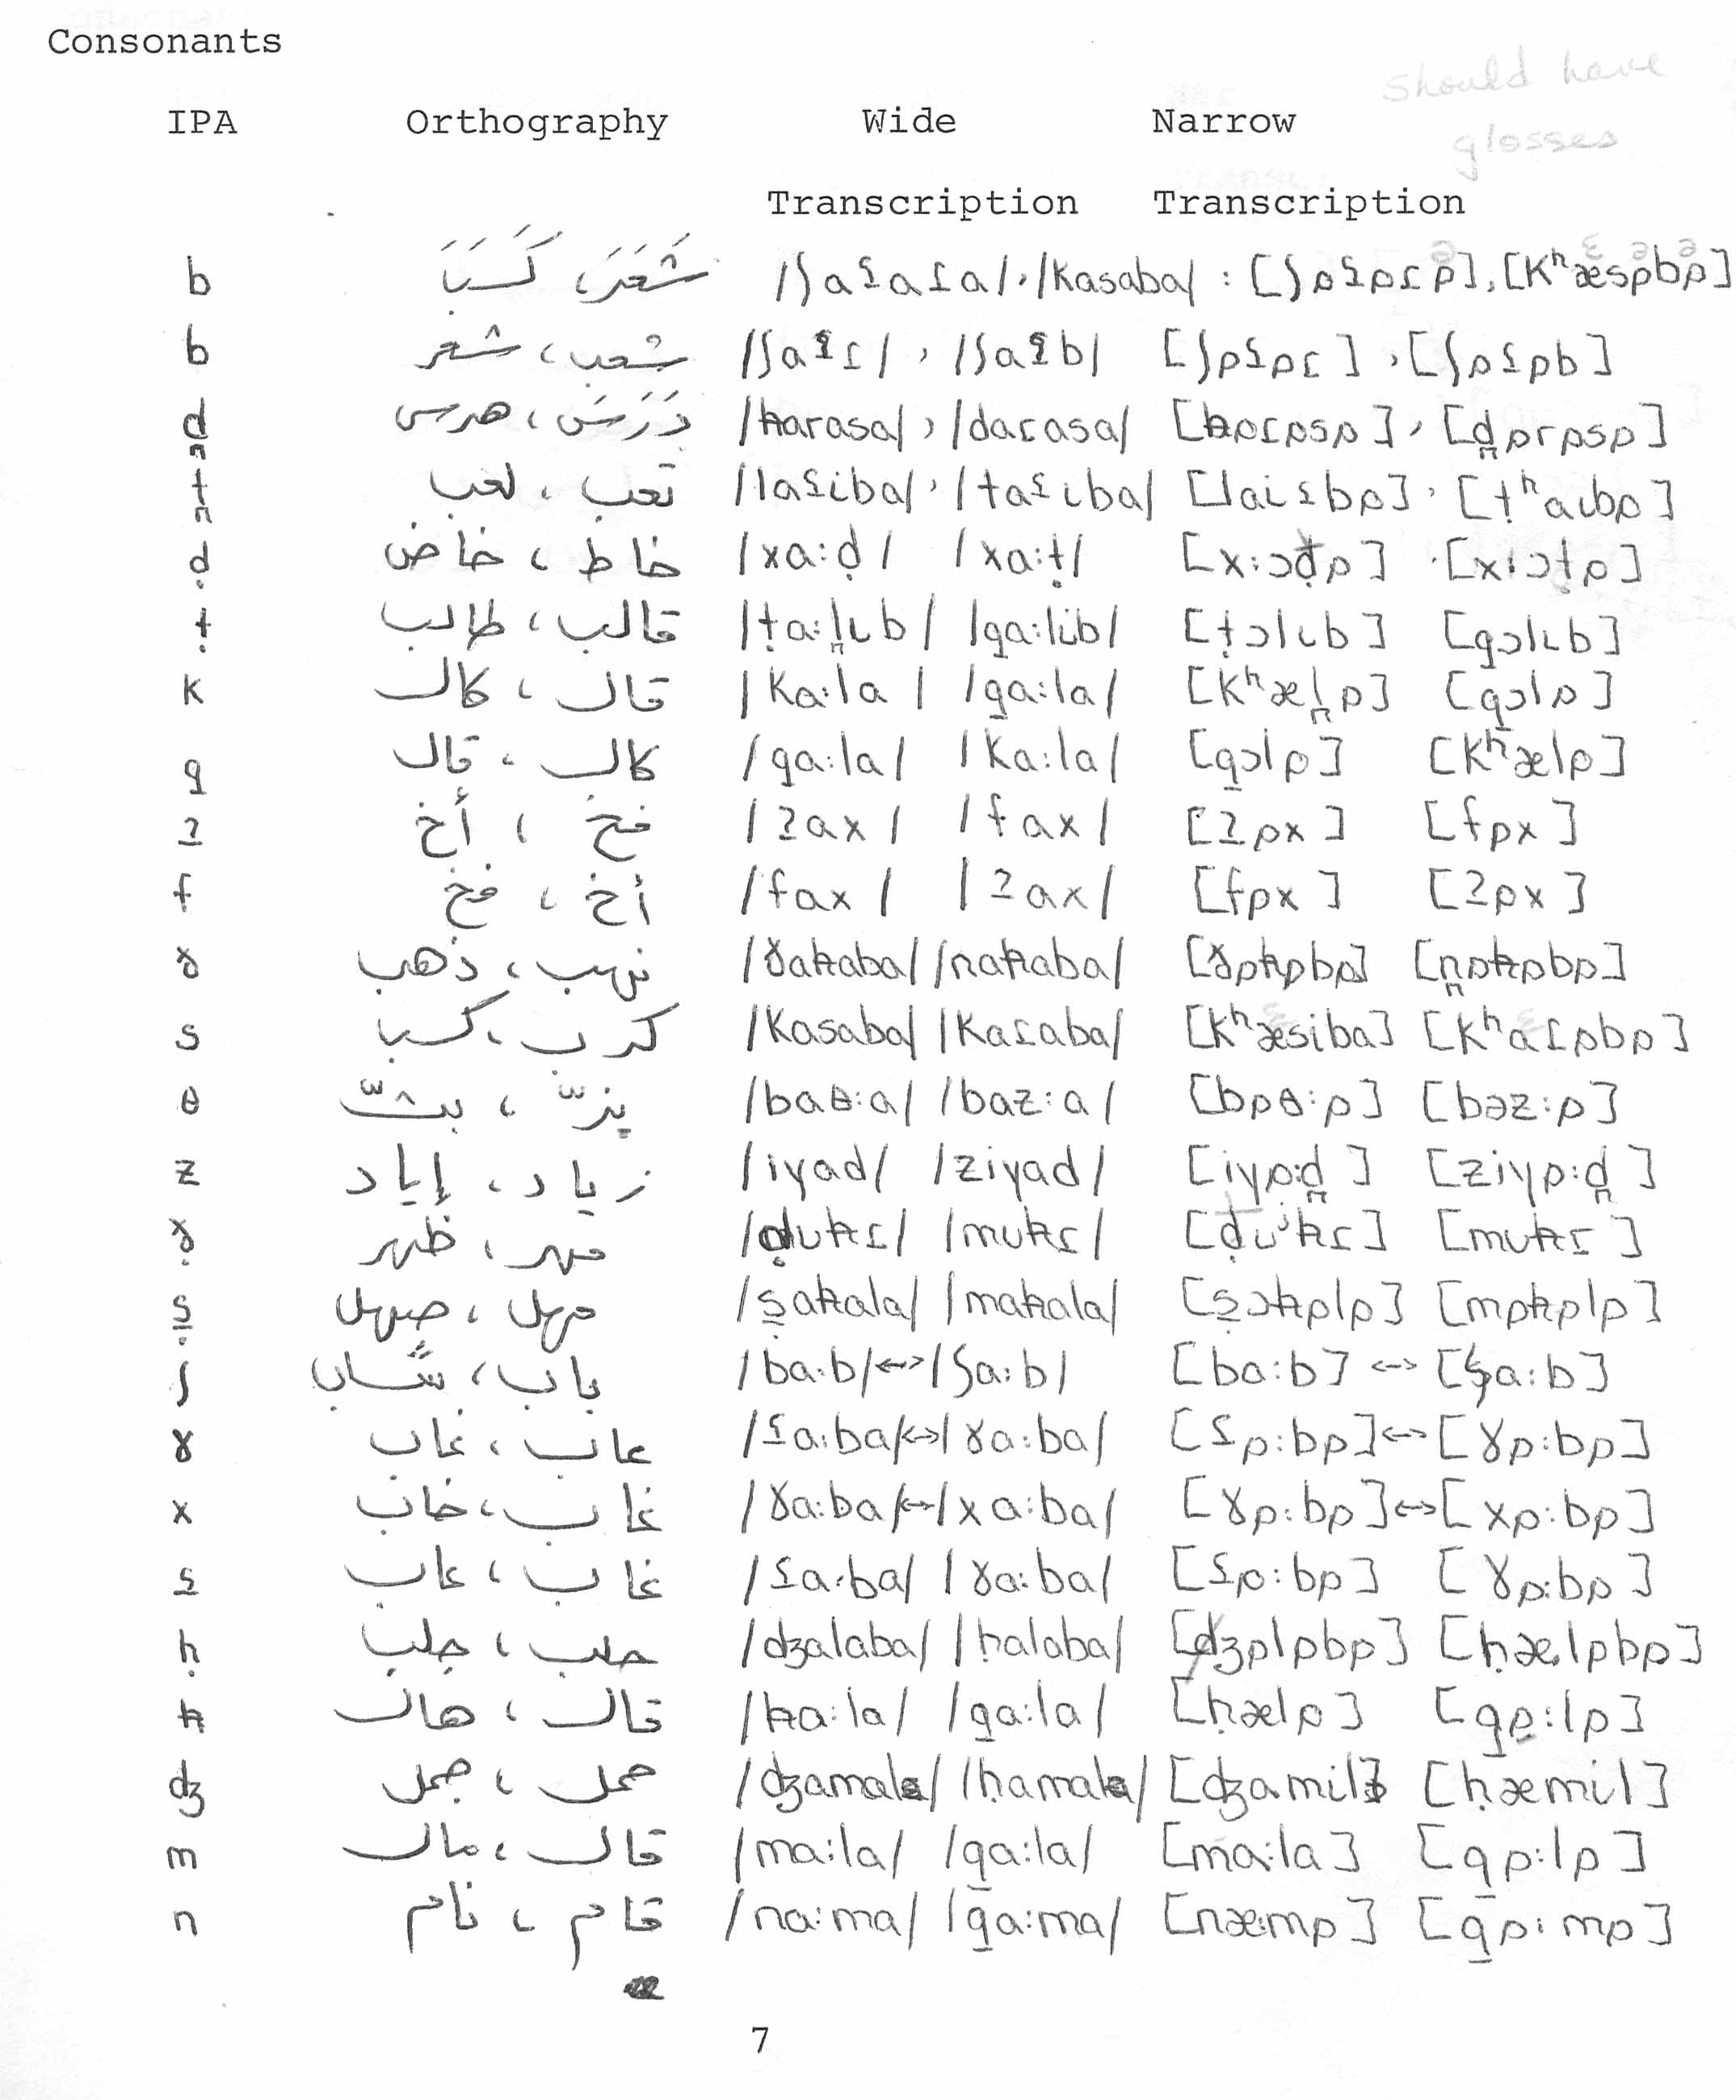 Consonants
should have
IPA Orthography Wide Narrow
glosses
Transcription Transcription
b شَعَرَ، كَسَبَ /ʃaʕaɾa/,/kasaba/ : [ʃɒʕɒɾɒ],[Kʰæsɒbɒ]
b شعب، شعر /ʃaʕɾ/ , /ʃaʕb/ [ʃɒʕɒɾ] , [ʃɒʕɒb]
d̪ دَرَسَ، هرس /ħarasa/ , /daɾasa/ [ħɒɾɒsɒ] , [d̪ɒrɒsɒ]
t̪ تعب، لعب /laʕiba/ , /taʕɩba/ [laiʕbɒ] , [ṭʰaɩbɒ]
ḍ خاط، خاض /xa:ḍ/ /xa:ṭ/ [x:ɔḍɒ] [x:ɔṭɒ]
ṭ قالب، طالب /ṭa:l̪ɩb/ /qa:lib/ [ṭɔlɩb] [qɔlɩb]
K قال، كال /Ka:la/ /q̱a:la/ [Kʰæl̪ɒ] [q̱ɔlɒ]
q كال، قال /qa:la/ /ka:la/ [q̱ɔlɒ] [Kʰælɒ]
ʔ فخ، أخ /ʔax/ /fax/ [ʔɒx] [fɒx]
f أخ، فخ /fax/ /ʔax/ [fɒx] [ʔɒx]
ɣ نهب، ذهب /ɣaħaba/ /naħaba/ [ɣɒħɒbɒ] [n̪ɒħɒbɒ]
s كرب، كسب /Kasaba/ /Kaɾaba/ [kʰæsiba] [kʰaɾɒbɒ]
θ بزّ، بثّ /baθ:a/ /baz:a/ [bɒθ:ɒ] [bəz:ɒ]
z زياد، إياد /iyad/ /ziyad/ [iyɒ:d̪] [ziyɒ:d̪]
ɣ̣ مهر، ظهر /ḍuħɾ/ /muħɾ/ [ḍuħɾ] [muħɾ]
ṣ مهل، صهل /ṣaħala/ /maħala/ [ṣɔħɒlɒ] [mɒħɒlɒ]
ʃ باب، شاب /ba:b/↔/ʃa:b/ [ba:b] ↔ [ʃa:b]
ɣ عاب، غاب /ʕa:ba/↔/ɣa:ba/ [ʕɒ:bɒ]↔[ɣɒ:bɒ]
x غاب، خاب /ɣa:ba/↔/xa:ba/ [ɣɒ:bɒ]↔[xɒ:bɒ]
ʕ غاب، عاب /ʕa:ba/ /ɣa:ba/ [ʕɒ:bɒ] [ɣɒ:bɒ]
ḥ حلب، جلب /ʤalaba/ /ḥalaba/ [ʤɒlɒbɒ] [ḥælɒbɒ]
ħ قال، هال /ħa:la/ /q̱a:la/ [ḥælɒ] [qɒ:lɒ]
ʤ حمل، جمل /ʤamala/ /ḥamala/ [ʤamil] [ḥæmil]
m قال، مال /ma:la/ /qa:la/ [ma:la] [qɒ:lɒ]
n قام، نام /na:ma/ /q̱a:ma/ [næ:mɒ] [q̱ɒ:mɒ]
7